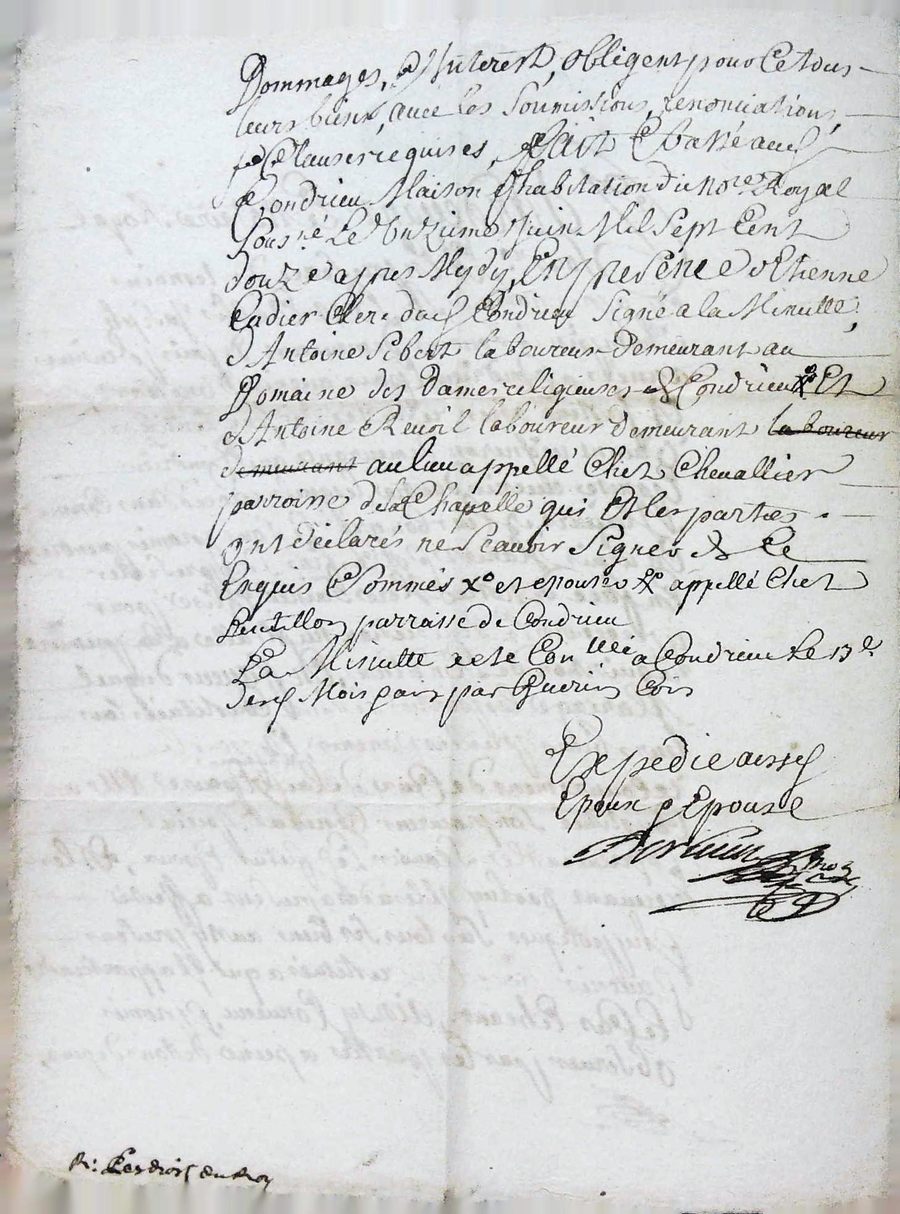 Dommages, & Interest, obligent pour Ce tous
leurs biens, avec les Soumissions, renonciations,
& Clauses requises, fait & Passé aud
Condrieu Maison d'habitation du No.re Royal
Sousné Le Onzieme Juin Mil Sept Cent
douze apres Mydy, En presence d'Etienne
Cadier Clerc dud Condrieu Signé a la Minutte,
d'Antoine Sibert laboureur Demeurant au
Domaine des Dames religieuses de Condrieu Et
d'Antoine Revoil laboureur demeurant laboureur
demeurant au lieu appellé Chez Chevallier
parroisse de la Chapelle qui Et les parties
ont déclarés ne Scavoir Signer de Ce
Enquis & Sommés xo et epouse appellé Chez
parrasse de Condrieu
La Minutte este Con.llée a Condrieu Le 13e
desd Mois par Guerin
Expedie ausd
Epoux & Epouse
Les droits du Roy